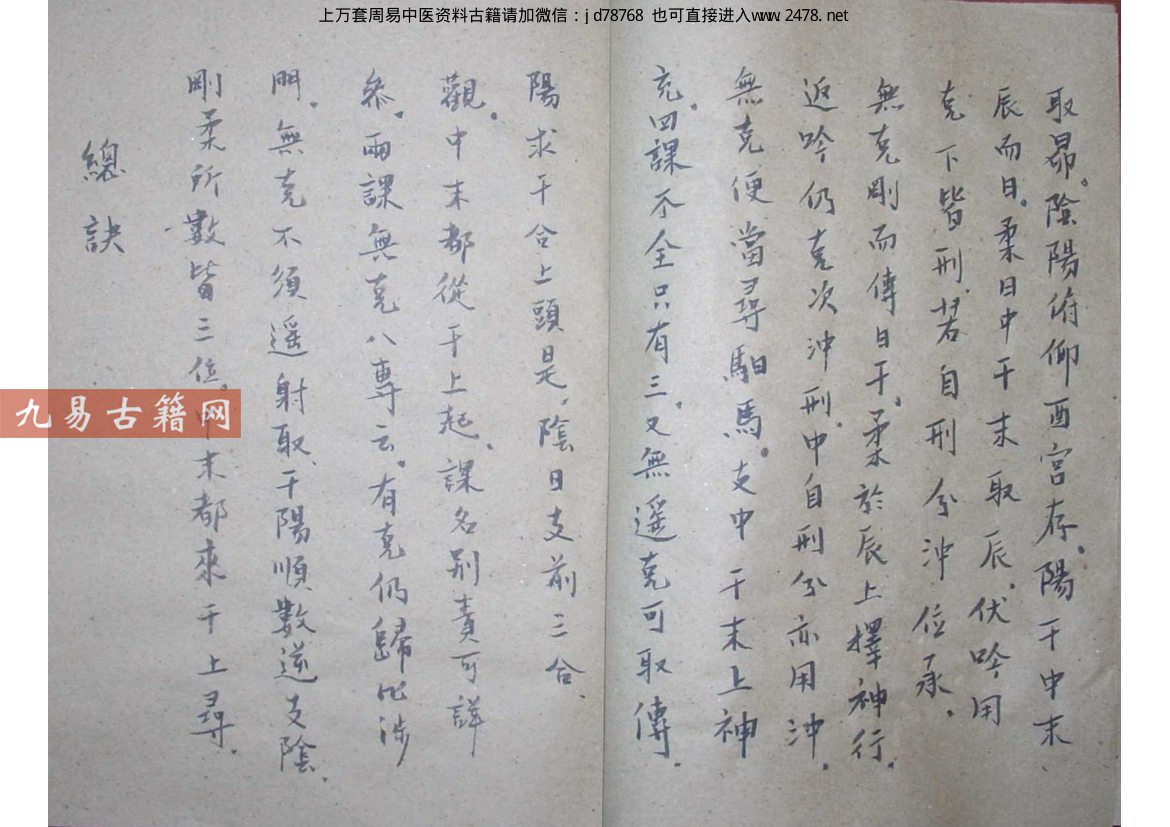 上万套周易中医资料古籍请加微信：jd78768 也可直接进入www.2478.net
取昴。陰陽俯仰酉宮存。陽干中末
辰而日。柔日中干末取辰。伏吟用
克下皆刑。若自刑分沖位承。
無克剛而傳日干。柔於辰上擇神行。
返吟仍克次沖刑。中自刑分亦用沖。
無克便當尋馹馬。支中干末上神
充。四課不全只有三。又無遥克可取傳。
陽求干合上頭是。陰日支前三合。
觀。中末都從干上起。課名别責可詳
叅。兩課無克八專云。有克仍歸比涉
門。無克不須遥射取。干陽順數逆支陰。
剛柔所數皆三位。中末都來干上尋。
總訣
九易古籍网